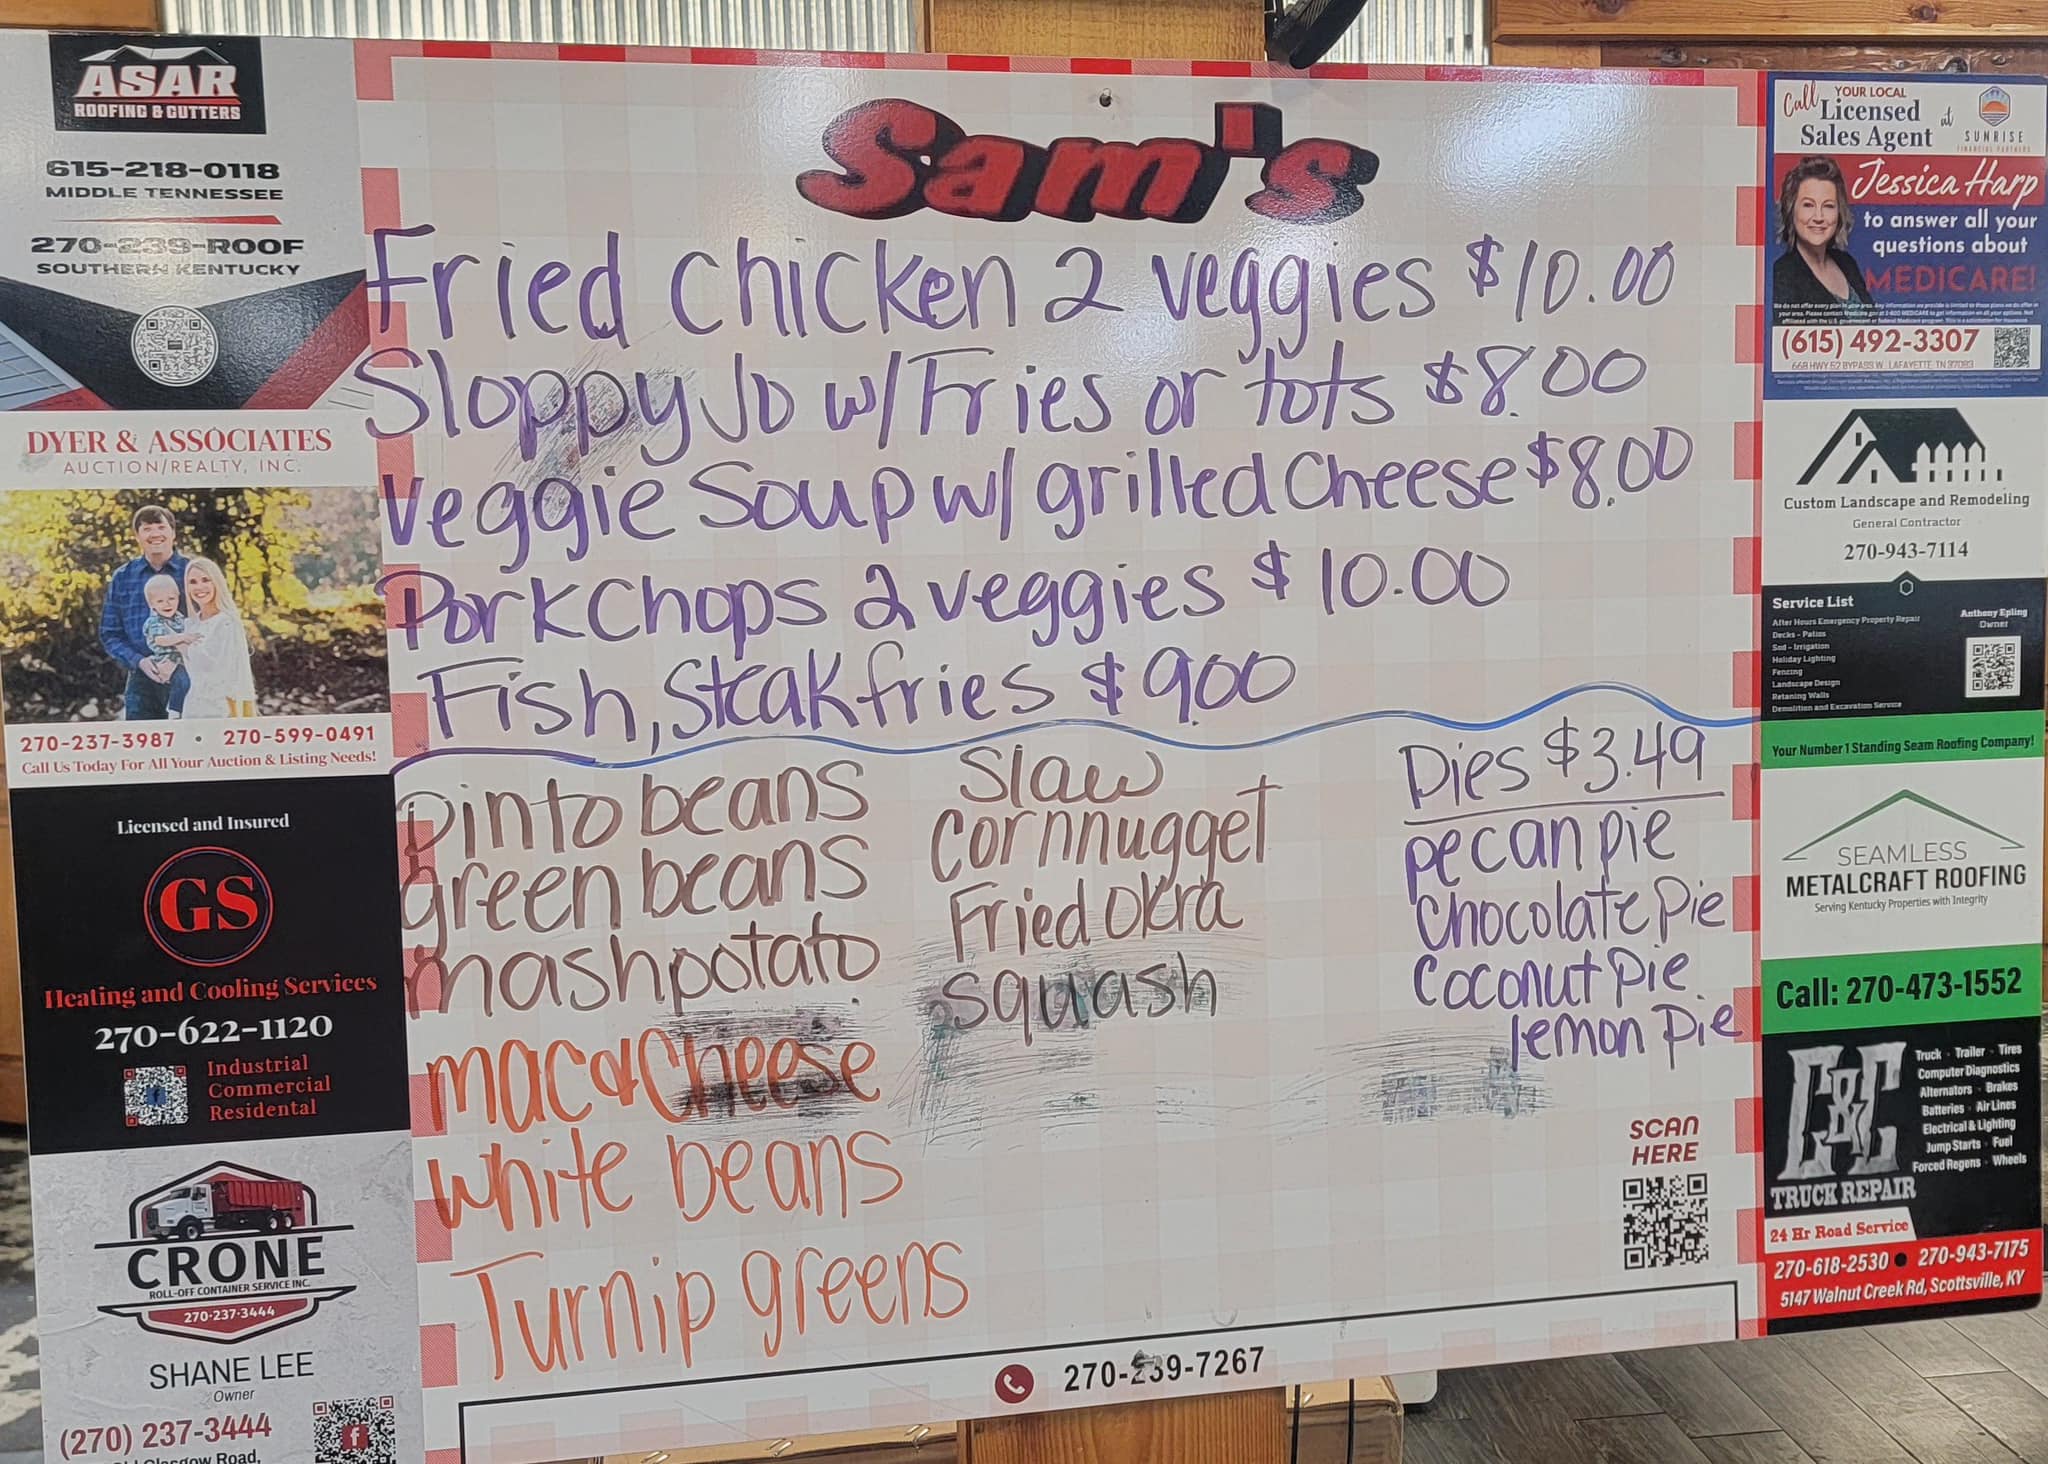 ASAR
ROOFING & GUTTERS
615-218-0118
MIDDLE TENNESSEE
270-239-ROOF
SOUTHERN KENTUCKY
DYER & ASSOCIATES
AUCTION/REALTY, INC.
270-237-3987 • 270-599-0491
Call Us Today For All Your Auction & Listing Needs!
Licensed and Insured
GS
Heating and Cooling Services
270-622-1120
Industrial
Commercial
Residential
CRONE
ROLL-OFF CONTAINER SERVICE INC.
270-237-3444
SHANE LEE
Owner
(270) 237-3444
Glasgow Road,
Sam's
Fried chicken 2 veggies $10.00
Sloppy Jo w/Fries or tots $8.00
veggie Soup w/ grilled Cheese $8.00
PorkChops 2 veggies $10.00
Fish, Steak fries $9.00
pinto beans
green beans
mashpotato
mac & Cheese
white beans
Turnip greens
Slaw
cornnugget
Fried Okra
squash
Pies $3.49
pecan pie
Chocolate Pie
Coconut Pie
lemon Pie
SCAN
HERE
270-239-7267
Call YOUR LOCAL
Licensed
Sales Agent at
SUNRISE
FINANCIAL PARTNERS
Jessica Harp
to answer all your
questions about
MEDICARE!
(615) 492-3307
668 HWY 52 BYPASS W, LAFAYETTE TN 37083
Custom Landscape and Remodeling
General Contractor
270-943-7114
Service List
After Hours Emergency Property Repair
Decks - Patios
Sod - Irrigation
Holiday Lighting
Fencing
Landscape Design
Retaning Walls
Demolition and Excavation Service
Anthony Epling
Owner
Your Number 1 Standing Seam Roofing Company!
SEAMLESS
METALCRAFT ROOFING
Serving Kentucky Properties with Integrity
Call: 270-473-1552
C&C
TRUCK REPAIR
Truck - Trailer - Tires
Computer Diagnostics
Alternators - Brakes
Batteries - Air Lines
Electrical & Lighting
Jump Starts - Fuel
Forced Regens - Wheels
24 Hr Road Service
270-618-2530 • 270-943-7175
5147 Walnut Creek Rd, Scottsville, KY